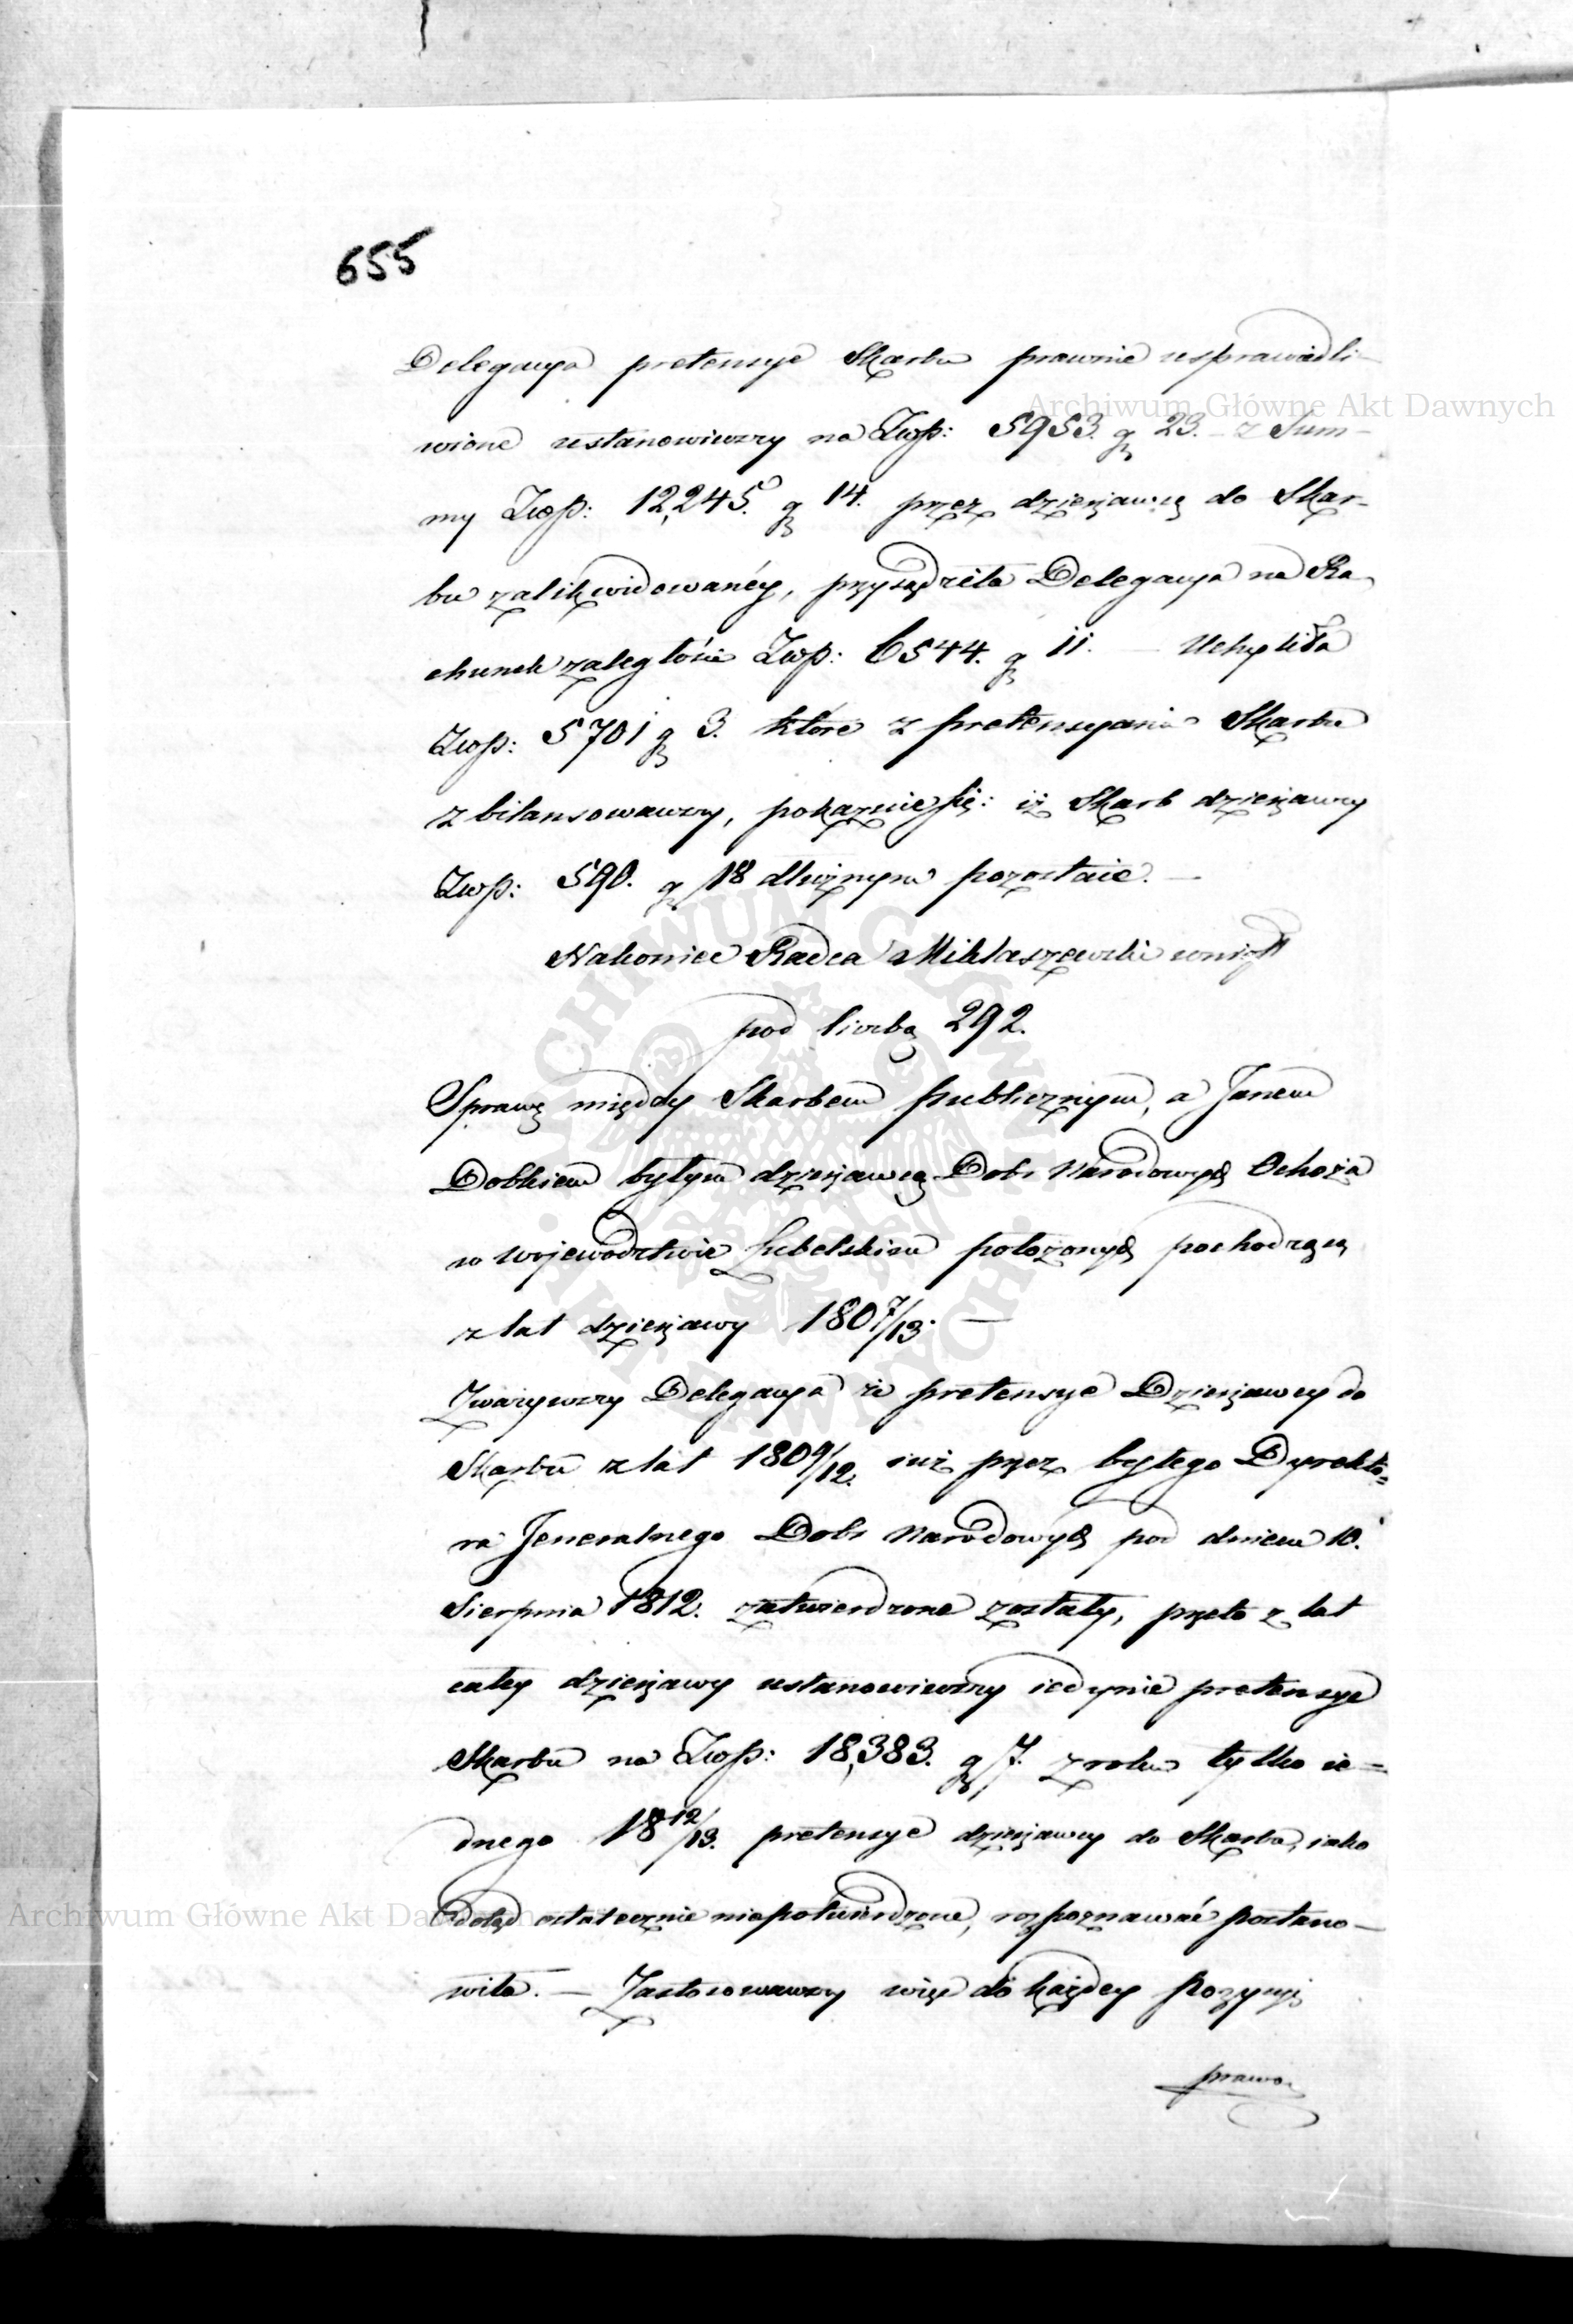 655
Delegacya pretensye Skarbu prawnie usprawiedli-
Archiwum Główne Akt Dawnych
wione ustanowiwszy na Złwp: 5953. g 23. – z Sum-
my Złwp: 12,245. g 14. przez dzierżawcę do Skar-
bu zalikwidowanéy, przysądziła Delegacya na Ra-
chunek zaległości Złwp: 6544. g 11. Uchyliła
Złwp: 5701 g 3. które z pretensyami Skarbu
zbilansowawszy, pokazuie się: iż Skarb dzierżawcy
Złwp: 590. g 18 dłużnym pozostaie. —
Nakoniec Radca Miklaszewski wniósł
pod liczbą 292.
Sprawę między Skarbem publicznym, a Janem
Dobkiem byłym dzierżawcą Dóbr Narodowych Ochoża
w Województwie Lubelskim położonych pochodzącą
z lat dzierżawy 1807/13. —
Zważywszy Delegacya że pretensye Dzierżawcy do
Skarbu z lat 1809/12. iuż przez byłego Dyrekto=
ra Jeneralnego Dóbr Narodowych pod dniem 10.
Sierpnia 1812. zatwierdzone zostały, przeto z lat
całey dzierżawy ustanowiwszy iedynie pretensye
Skarbu na Złwp: 18,383. g 7. z roku tylko ie=
dnego 1812/13. pretensye dzierżawcy do Skarbu, iako
Archiwum Główne Akt Dawnych
dotąd ostatecznie niepotwierdzone, rozpoznawać postano-
wiła. — Zastosowawszy więc do każdey pozycyi
prawo